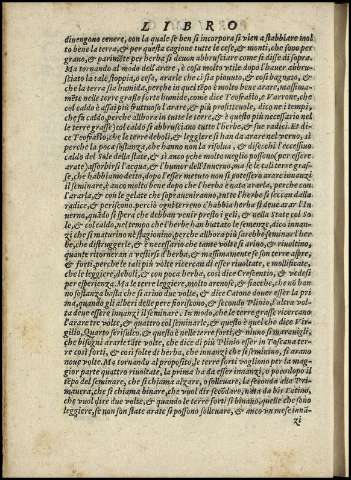 LIBRO
diuengono cenere, con la quale se ben si incorpora si vien a stabbiare mol
to bene la terra, & per questa cagione tutte le cose, & monti, che sono per
grano, & parimente per herba si deuon abbrusciare come si disse di sopra.
Ma tornando al modo dell'arare, è cosa molto vtile dipo l'hauer abbru-
sciato là tale stoppia, o cesa, ararle che ci sia piouuto, & così bagnato, &
che la terra sia humida, perche in quei tëpi è molto bene arare, massima-
mëte nelle terre grasse forte humide, come dice Teofrasto, e Varrone, che
col caldo è assai più fruttuoso l'arare, & più profitteuole, dico ne i tempi,
che fu caldo, perche allhora in tutte le terre, & è questo più necessario nel
le terre grasse; col caldo si abbrusciano tutte l'herbe, & sue radici. Et di-
ce Teofrasto, che le terre deboli, & leggiere si han da arare nel verno, sì
perche la poca sostanza, che hanno non la risolua, & disecchi l'eccessiuo
caldo del Sole della state, & sì anco perche molto meglio possono (per esser
arate) assorbir l'acqua, & l'humor dell'Inuerno, ma se le tali terre gras-
se, che habbiamo detto, dopo l'esser metuto non si potessero arare innanzi
il seminare, è anco molto bene dopo che l'herba è nata ararle, perche con
l'ararla, & con le gelate che sopraueniranno, tutte l'herbe si seccan dalla
radice, & periscono, perciò ogni terreno c'habbia herba si deue arar l'In
uerno, quãdo si spera che debban venir presto i geli, & nella State col So-
le, & col caldo, nel tempo che l'herbe han buttato le semenze, dico innan-
zi che si maturino nè stagionino, perche allhora più sarebbe seminar l'her
be, che distruggerle, & è necessario che tante volte si arino, & riuoltino,
quante ritorneran a vestirsi d'herba, & massimamente se son terre aspre,
& forti, perche le tali più volte ricercan di esser riuoltate, e mollificate,
che le leggiere, deboli, & con poca herba, così dice Crescentio, & vedesi
per esperienza. Ma le terre leggiere, molto arenose, & fiacche, che nõ han
no sostanza basta che si arino due volte, & dice Catone douer esser la pri
ma, quando gli alberi delle pere fioriscono, & secondo Plinio, l'altra vol-
ta deue essere innanzi il seminare. In modo, che le terre grasse ricercan
l'arare tre volte, & quattro col seminarle, & questo è quel che dice Vir-
gilio, Quarto seri sulco, & questo è nelle terre forti, & niuno si marauigli,
che bisogni ararle tãte volte, che dice di più Plinio esser in Toscana ter-
re così forti, & così folte di herba, che innanzi che si seminino, si arano
noue volte. Ma tornando al proposito, le terre forti vogliono per la mag-
gior parte quattro riuoltate, la prima ha da esser innanzi, o poco dopo il
tepo del seminare, che si chiama alzare, o solleuare, la seconda alla Pri-
mauera, che si chiama binare, che vuol dir secõdare, nata da bis Latino,
che vuol dire due volte, & quando le terre forti si binano, quelle che sono
leggiere, se non son state arate si possono solleuare, & anco vn mese innã-
zi